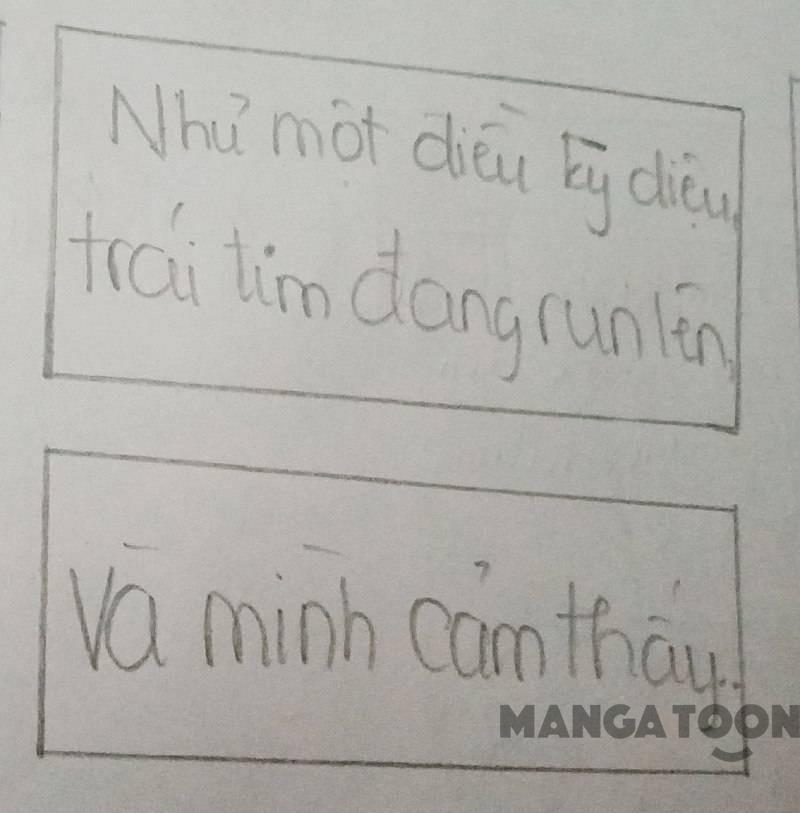 Như một điều kỳ diệu,
trái tim đang run lên.
Và mình cảm thấy...
MANGATOON